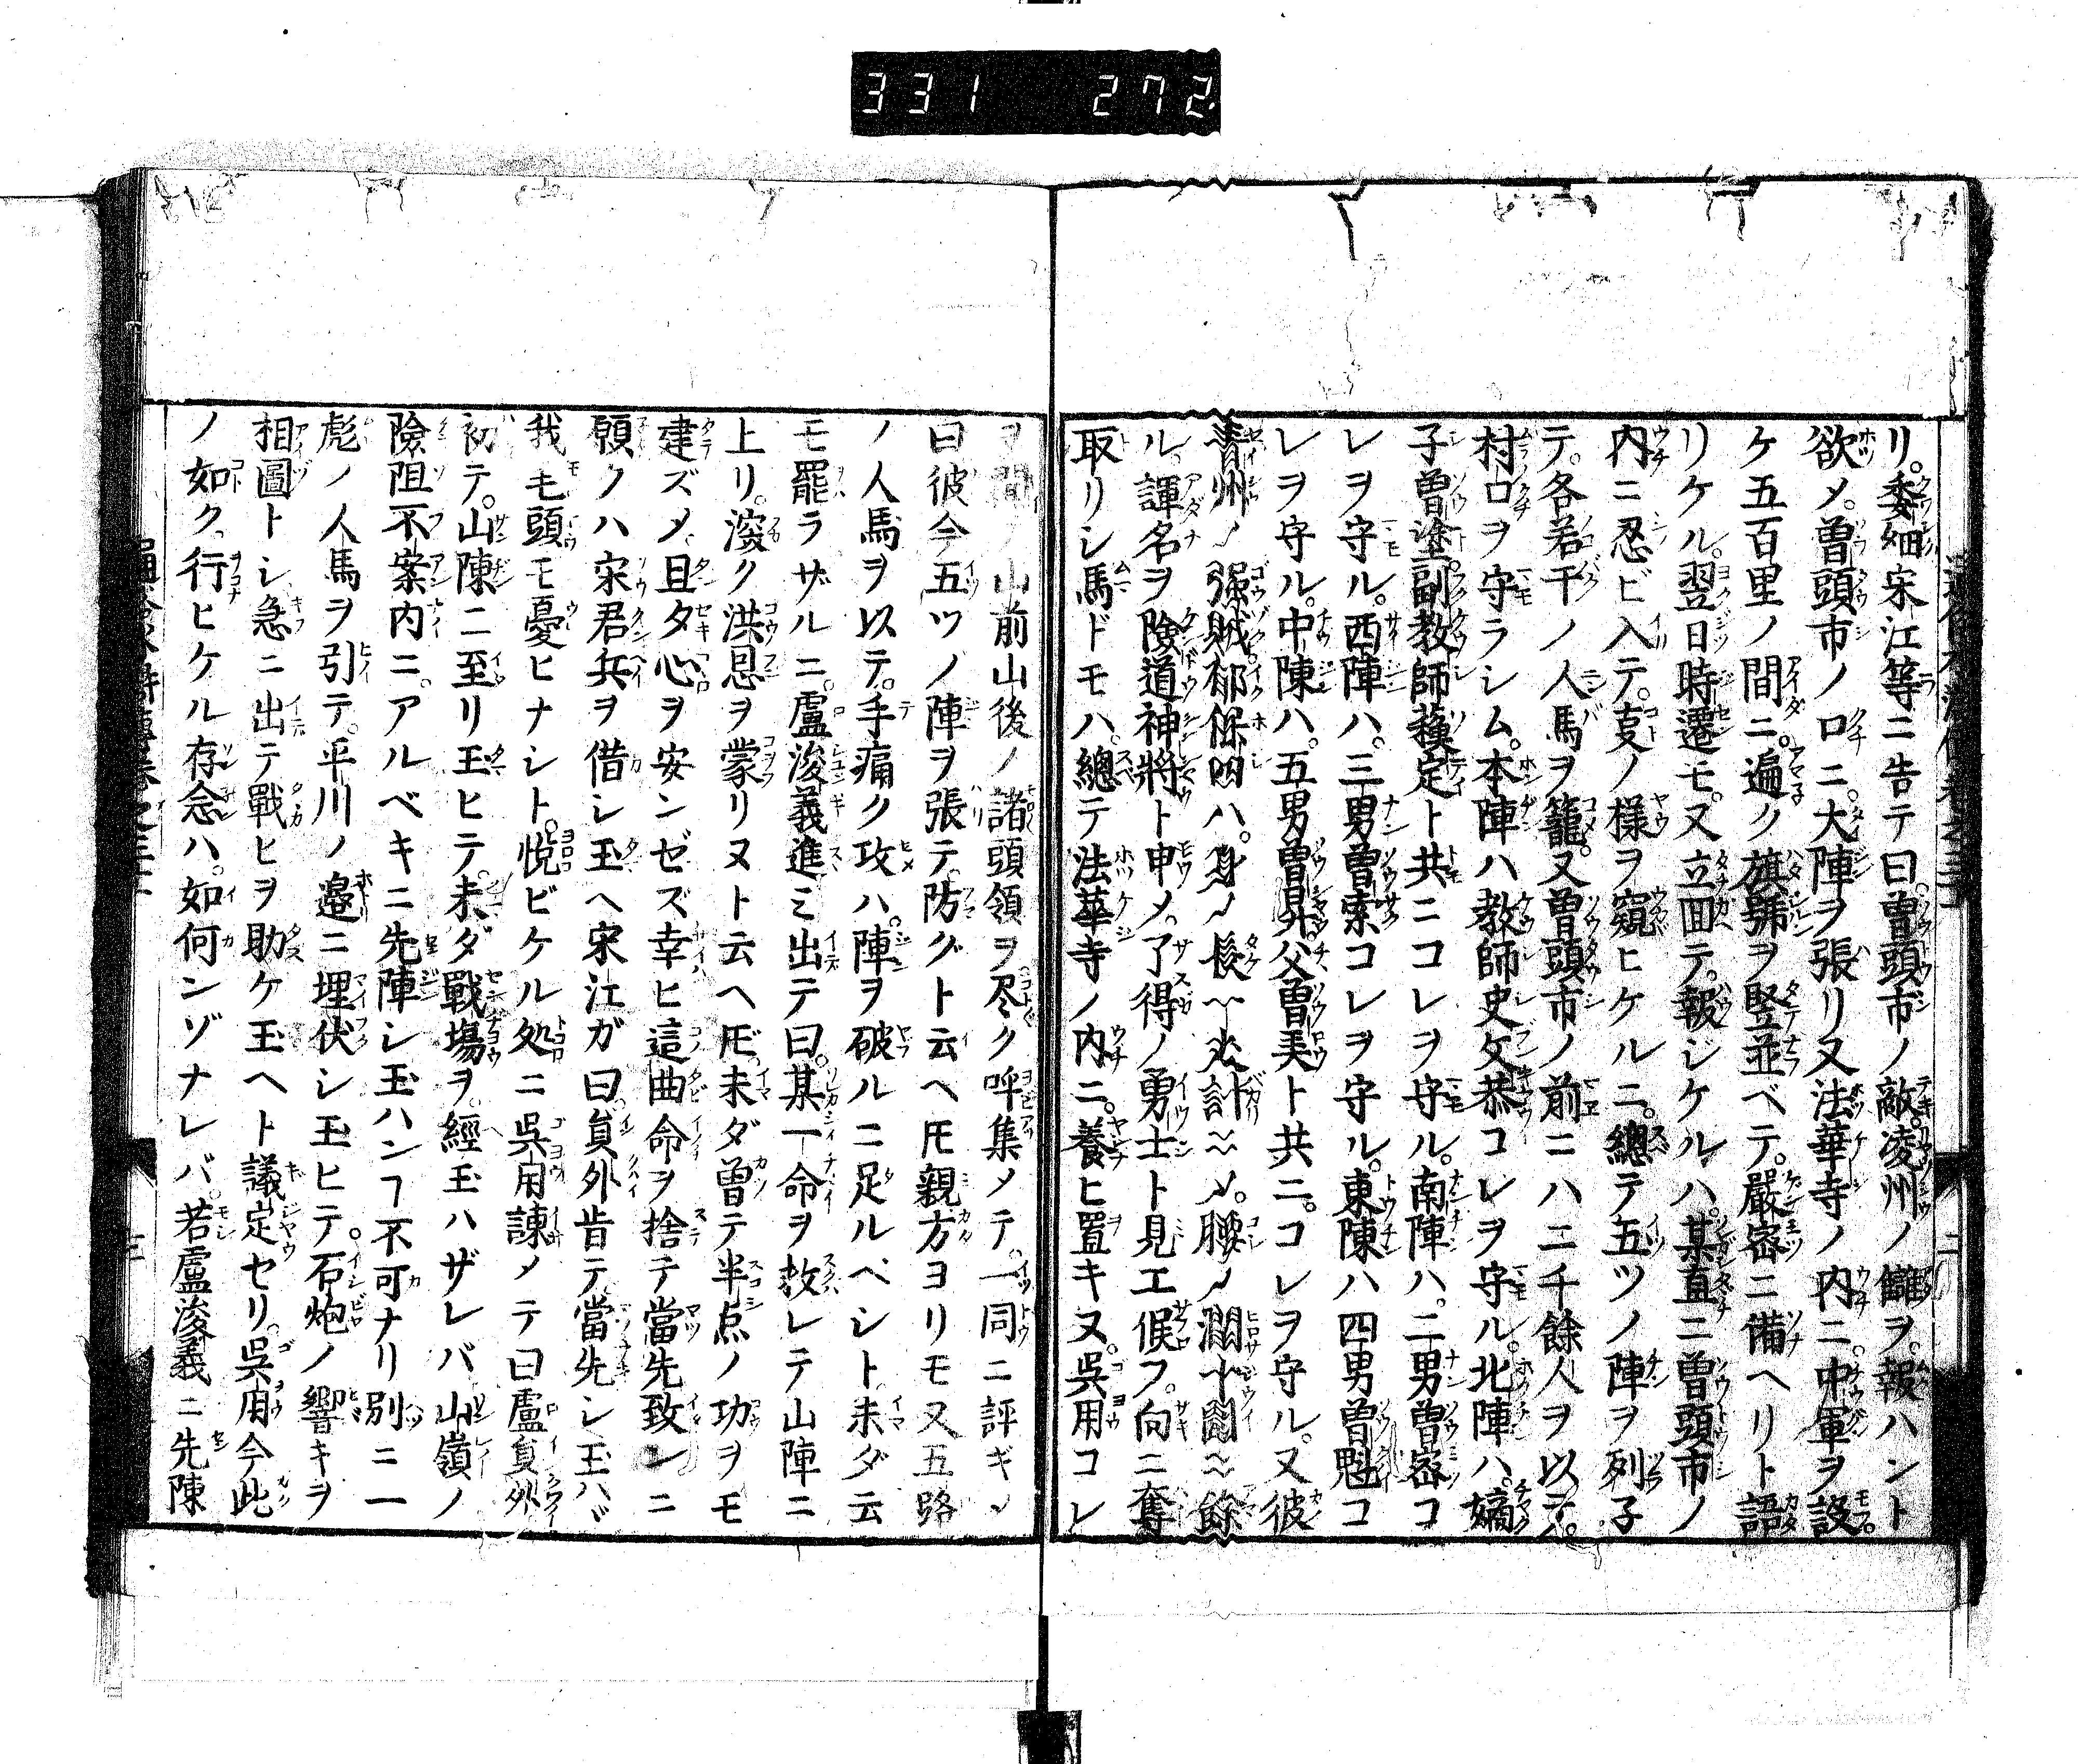 331 272
リ。委細宋江等ニ告テ曰。曽頭市ノ敵。凌州ノ讎ヲ。報ハント
欲メ。曽頭市ノ口ニ。大陣ヲ張リ又法華寺ノ内ニ。中軍ヲ設
ケ五百里ノ間ニ。遍ク旗號ヲ竪並ベテ。嚴密ニ備ヘリト語
リケル。翌日時遷モ。又立囬テ。報ジケルハ。某直ニ曽頭市ノ
内ニ忍ビ入テ。支ノ様ヲ窺ヒケルニ。總テ五ツノ陣ヲ列子
テ。各若干ノ人馬ヲ籠。又曽頭市ノ前ニハ二千餘人ヲ以テ。
村口ヲ守ラシム。本陣ハ教師史文恭コレヲ守ル。北陣ハ。嫡
子曽塗。副教師蘓定ト共ニコレヲ守ル。南陣ハ。二男曽密コ
レヲ守ル。西陣ハ。三男曽索コレヲ守ル。東陳ハ四男曽魁コ
レヲ守ル。中陳ハ。五男曽昇。父曽美ト共ニ。コレヲ守ル。又彼
青州ノ强賊郁保四ハ。身ノ長一丈計ニメ。腰ノ濶十圍ニ餘
ル。諢名ヲ險道神將ト申メ。了得ノ勇士ト見エ候フ。向ニ奪
取リシ馬ドモハ。總テ法華寺ノ内ニ。養ヒ置キヌ。呉用コレ
ヲ聞テ山前山後ノ諸頭領ヲ尽ク呼集メテ。一同ニ評ギメ
曰彼今五ツノ陣ヲ張テ。防グト云ヘ𪜈親方ヨリモ又五路
ノ人馬ヲ以テ。手痛ク攻ハ。陣ヲ破ルニ足ルベシト。未ダ云
モ罷ラザルニ。盧浚義進ミ出テ曰。某一命ヲ救レテ山陣ニ
上リ。深ク洪恩ヲ蒙リヌト云ヘ𪜈。未ダ曽テ半点ノ功ヲモ
建ズメ。且夕心ヲ安ンゼズ幸ヒ這曲命ヲ捨テ當先致ンニ
願クハ宋君兵ヲ借シ玉ヘ宋江ガ曰。員外肯テ當先シ玉ハバ
我モ頭モ憂ヒナシト。悦ビケル処ニ呉用諌メテ曰盧員外
初テ。山陳ニ至リ玉ヒテ。未ダ戰場ヲ。經玉ハザレバ山嶺ノ
險阻不案内ニ。アルベキニ先陣シ玉ハンヿ不可ナリ別ニ一
彪ノ人馬ヲ引テ。平川ノ邉ニ埋伏シ玉ヒテ。石炮ノ響キヲ
相圖トシ急ニ出テ戰ヒヲ助ケ玉ヘト議定セリ。呉用今此
ノ如ク行ヒケル存念ハ。如何ンゾナレバ。若盧浚義ニ先陳